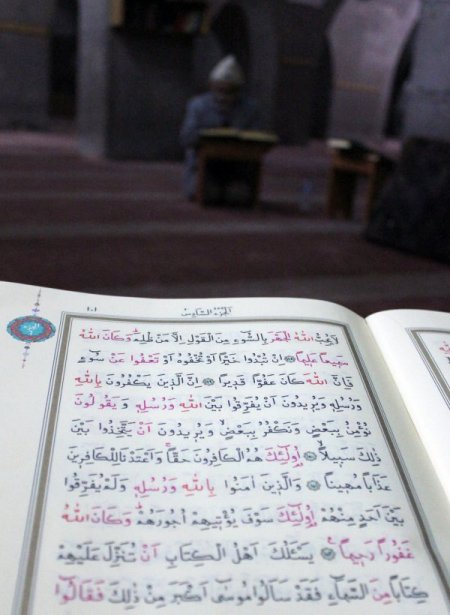 الجزء السادس ١٠١
لَا يُحِبُّ اللّٰهُ الْجَهْرَ بِالسُّوءِ مِنَ الْقَوْلِ اِلَّا مَنْ ظُلِمَ وَكَانَ اللّٰهُ
سَمِيعًا عَلِيمًا اِنْ تُبْدُوا خَيْرًا اَوْ تُخْفُوهُ اَوْ تَعْفُوا عَنْ سُوءٍ
فَاِنَّ اللّٰهَ كَانَ عَفُوًّا قَدِيرًا اِنَّ الَّذِينَ يَكْفُرُونَ بِاللّٰهِ
وَرُسُلِهِ وَيُرِيدُونَ اَنْ يُفَرِّقُوا بَيْنَ اللّٰهِ وَرُسُلِهِ وَيَقُولُونَ
نُؤْمِنُ بِبَعْضٍ وَنَكْفُرُ بِبَعْضٍ وَيُرِيدُونَ اَنْ يَتَّخِذُوا بَيْنَ
ذٰلِكَ سَبِيلًا اُولٰٓئِكَ هُمُ الْكَافِرُونَ حَقًّا وَاَعْتَدْنَا لِلْكَافِرِينَ
عَذَابًا مُهِينًا وَالَّذِينَ اٰمَنُوا بِاللّٰهِ وَرُسُلِهِ وَلَمْ يُفَرِّقُوا
بَيْنَ اَحَدٍ مِنْهُمْ اُولٰٓئِكَ سَوْفَ يُؤْتِيهِمْ اُجُورَهُمْ وَكَانَ اللّٰهُ
غَفُورًا رَحِيمًا يَسْـَٔلُكَ اَهْلُ الْكِتَابِ اَنْ تُنَزِّلَ عَلَيْهِمْ
كِتَابًا مِنَ السَّمَاءِ فَقَدْ سَاَلُوا مُوسٰى اَكْبَرَ مِنْ ذٰلِكَ فَقَالُوا